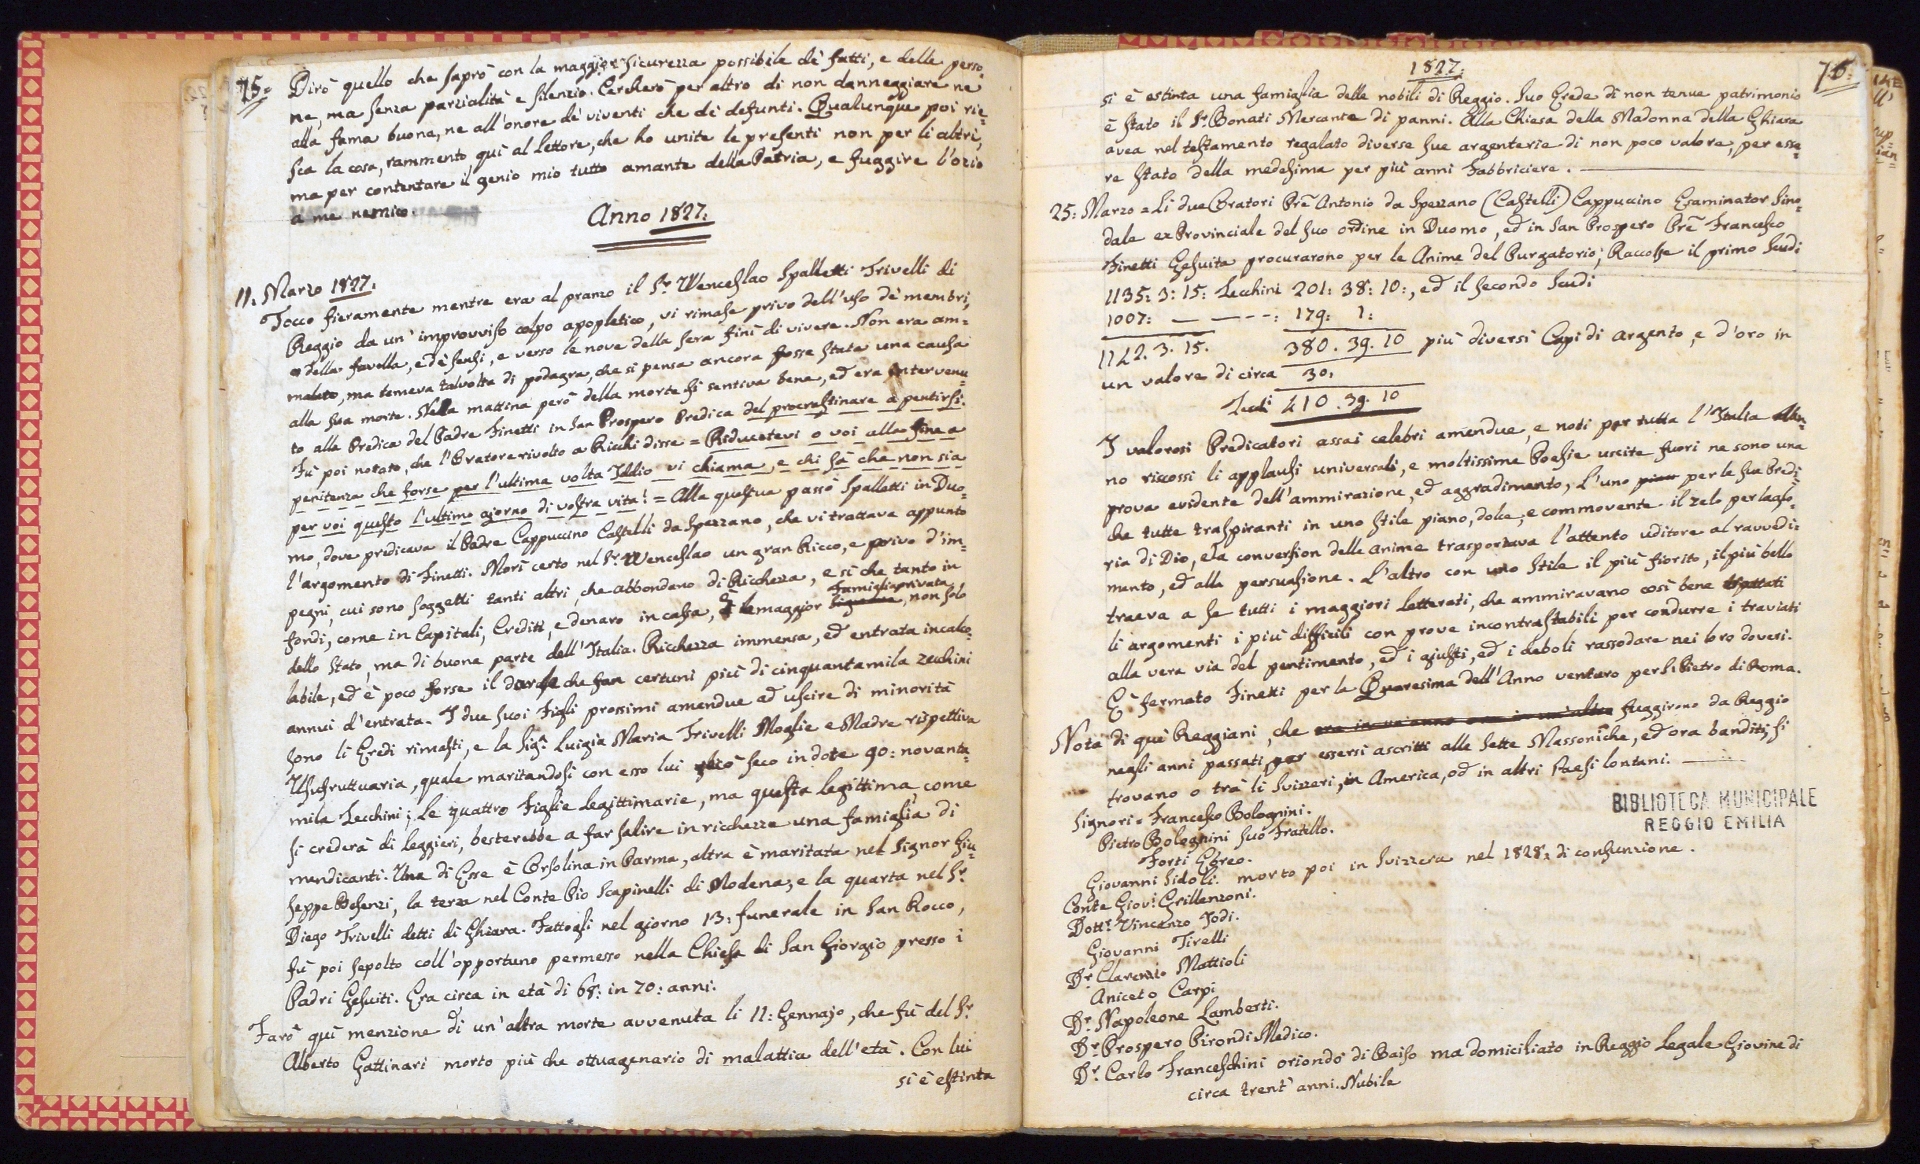 75=
Dirò quello che saprò con la maggior sicurezza possibile dè fatti, e delle perso=
ne, ma senza parzialità e silenzio. Cercherò per altro di non danneggiare ne
alla fama buona, ne all'onore dè viventi che dè defunti. Qualunque poi rie=
sca la cosa, rammento quì al Lettore, che ho unite le presenti non per li altri,
ma per contentare il genio mio tutto amante della Patria, e fuggire l'ozio
a me nemico.
Anno 1827:
11: Marzo 1827:
Tocco fieramente mentre era al pranzo il Sr. Wenceslao Spalletti Trivelli di
Reggio da un' improvviso colpo apopletico, vi rimase privo dell'uso dè membri,
della favella, e dè sensi, e verso le nove della sera finì di vivere. Non era am=
malato, ma temeva talvolta di podagra, che si pensa ancora fosse stata una causa
alla sua morte. Nella mattina però della morte si sentiva bene, ed era intervenu=
to alla Predica del Padre Finetti in San Prospero Predica del procrastinare a pentirsi.
Fù poi notato, che l'Oratore rivolto a Ricchi disse = Riducetevi o voi alla fine a
penitenza che forse per l'ultima volta Iddio vi chiama, e chi sà che non sia
per voi questo l'ultimo giorno di vostra vita! = Alla questua passò Spalletti in Duo=
mo, dove predicava il Padre Cappuccino Castelli da Spezzano, che vi trattava appunto
l'argomento di Finetti. Morì certo nel Sr. Wenceslao un gran Ricco, e privo d'im=
pegni, cui sono soggetti tanti altri, che abbondano di Ricchezza, e sì che tanto in
fondi, come in Capitali, Crediti, e denaro in cassa, è la maggior famiglia privata, non solo
dello Stato, ma di buona parte dell'Italia. Ricchezza immensa, ed entrata incalco=
labile, ed è poco forse il darle che fan certuni più di cinquantamila zecchini
annui d'entrata. I due suoi Figli prossimi amendue ad uscire di minorità
sono li Eredi rimasti, e la Sigra. Luigia Maria Trivelli Moglie e Madre rispettiva
Usufruttuaria, quale maritandosi con esso lui seco in dote 90: novanta=
mila Zecchini; Le quattro Figlie legittimarie, ma questa legittima come
si crederà di leggieri, basterebbe a far salire in ricchezze una famiglia di
mendicanti. Una di Esse è Orsolina in Parma, altra è maritata nel Signor Giu=
seppe Besenzi, la terza nel Conte Pio Scapinelli di Modena, e la quarta nel Sr.
Diego Trivelli detti di Ghiara. Fattogli nel giorno 13: funerale in San Rocco,
fù poi sepolto coll'opportuno permesso nella Chiesa di San Giorgio presso i
Padri Gesuiti. Era circa in età di 68: in 70: anni.
Farò quì menzione di un'altra morte avvenuta li 11: Gennajo, che fù del Sr.
Alberto Gattinari morto più che ottuagenario di malattia dell'età. Con lui
si è estinta
1827:
76=
si è estinta una famiglia delle nobili di Reggio. Suo Erede di non tenue patrimonio
è stato il Sr. Donati Mercante di panni. Alla Chiesa della Madonna della Ghiara
avea nel testamento regalato diverse sue argenterie di non poco valore, per esse=
re stato della medesima per più anni Fabbriciere.
25: Marzo = Li due Oratori Pre. Antonio da Spezzano (Castelli) Cappuccino Esaminator Sino=
dale exProvinciale del suo ordine in Duomo, ed in San Prospero Pre. Francesco
Finetti Gesuita procurarono per le Anime del Purgatorio; Raccolse il primo Scudi
1135: 3: 15: Zecchini 201: 38: 10:, ed il secondo Scudi
1007: — — — —: 179: 1:
1142. 3. 15. 380. 39. 10 più diversi Capi di argento, e d'oro in
un valore di circa 30:
Zecni 410. 39. 10
I valorosi Predicatori assai celebri amendue, e noti per tutta l'Italia
no riscossi li applausi universali, e moltissime Poesie uscite fuori ne sono una
prova evidente dell'ammirazione, ed aggradimento, L'uno per le sue Predi=
che tutte traspiranti in uno stile piano, dolce, e commovente il zelo per la glo=
ria di Dio, e la conversion delle anime trasportava l'attento uditore al ravvedi=
mento, ed alla persuasione. L'altro con uno stile il più fiorito, il più bello
traeva a se tutti i maggiori Letterati, che ammiravano così bene trattati
li argomenti i più difficili con prove incontrastabili per condurre i traviati
alla vera via del pentimento, ed i giusti, ed i deboli rassodare nei loro doveri.
E' fermato Finetti per la Quaresima dell'Anno venturo per S. Pietro di Roma.
Nota di què Reggiani, che fuggirono da Reggio
negli anni passati, per essersi ascritti alle sette Massoniche, ed ora banditi, si
trovano o trà li Svizzeri, in America, od in altri Paesi lontani.
BIBLIOTECA MUNICIPALE
REGGIO EMILIA
Signori = Francesco Bolognini.
Pietro Bolognini suo Fratello.
Forti Ebreo.
Giovanni Sidoli. morto poi in Svizzera nel 1828: di consunzione.
Conte Giovi. Grillenzoni.
Dottr. Vincenzo Jodi.
Giovanni Tirelli
Dr. Clarenzio Mattioli
Aniceto Carpi
Dr. Napoleone Lamberti.
Dr. Prospero Pirondi Medico.
Dr. Carlo Franceschini oriondo di Baiso ma domiciliato in Reggio Legale Giovine di
circa trent' anni. Nubile